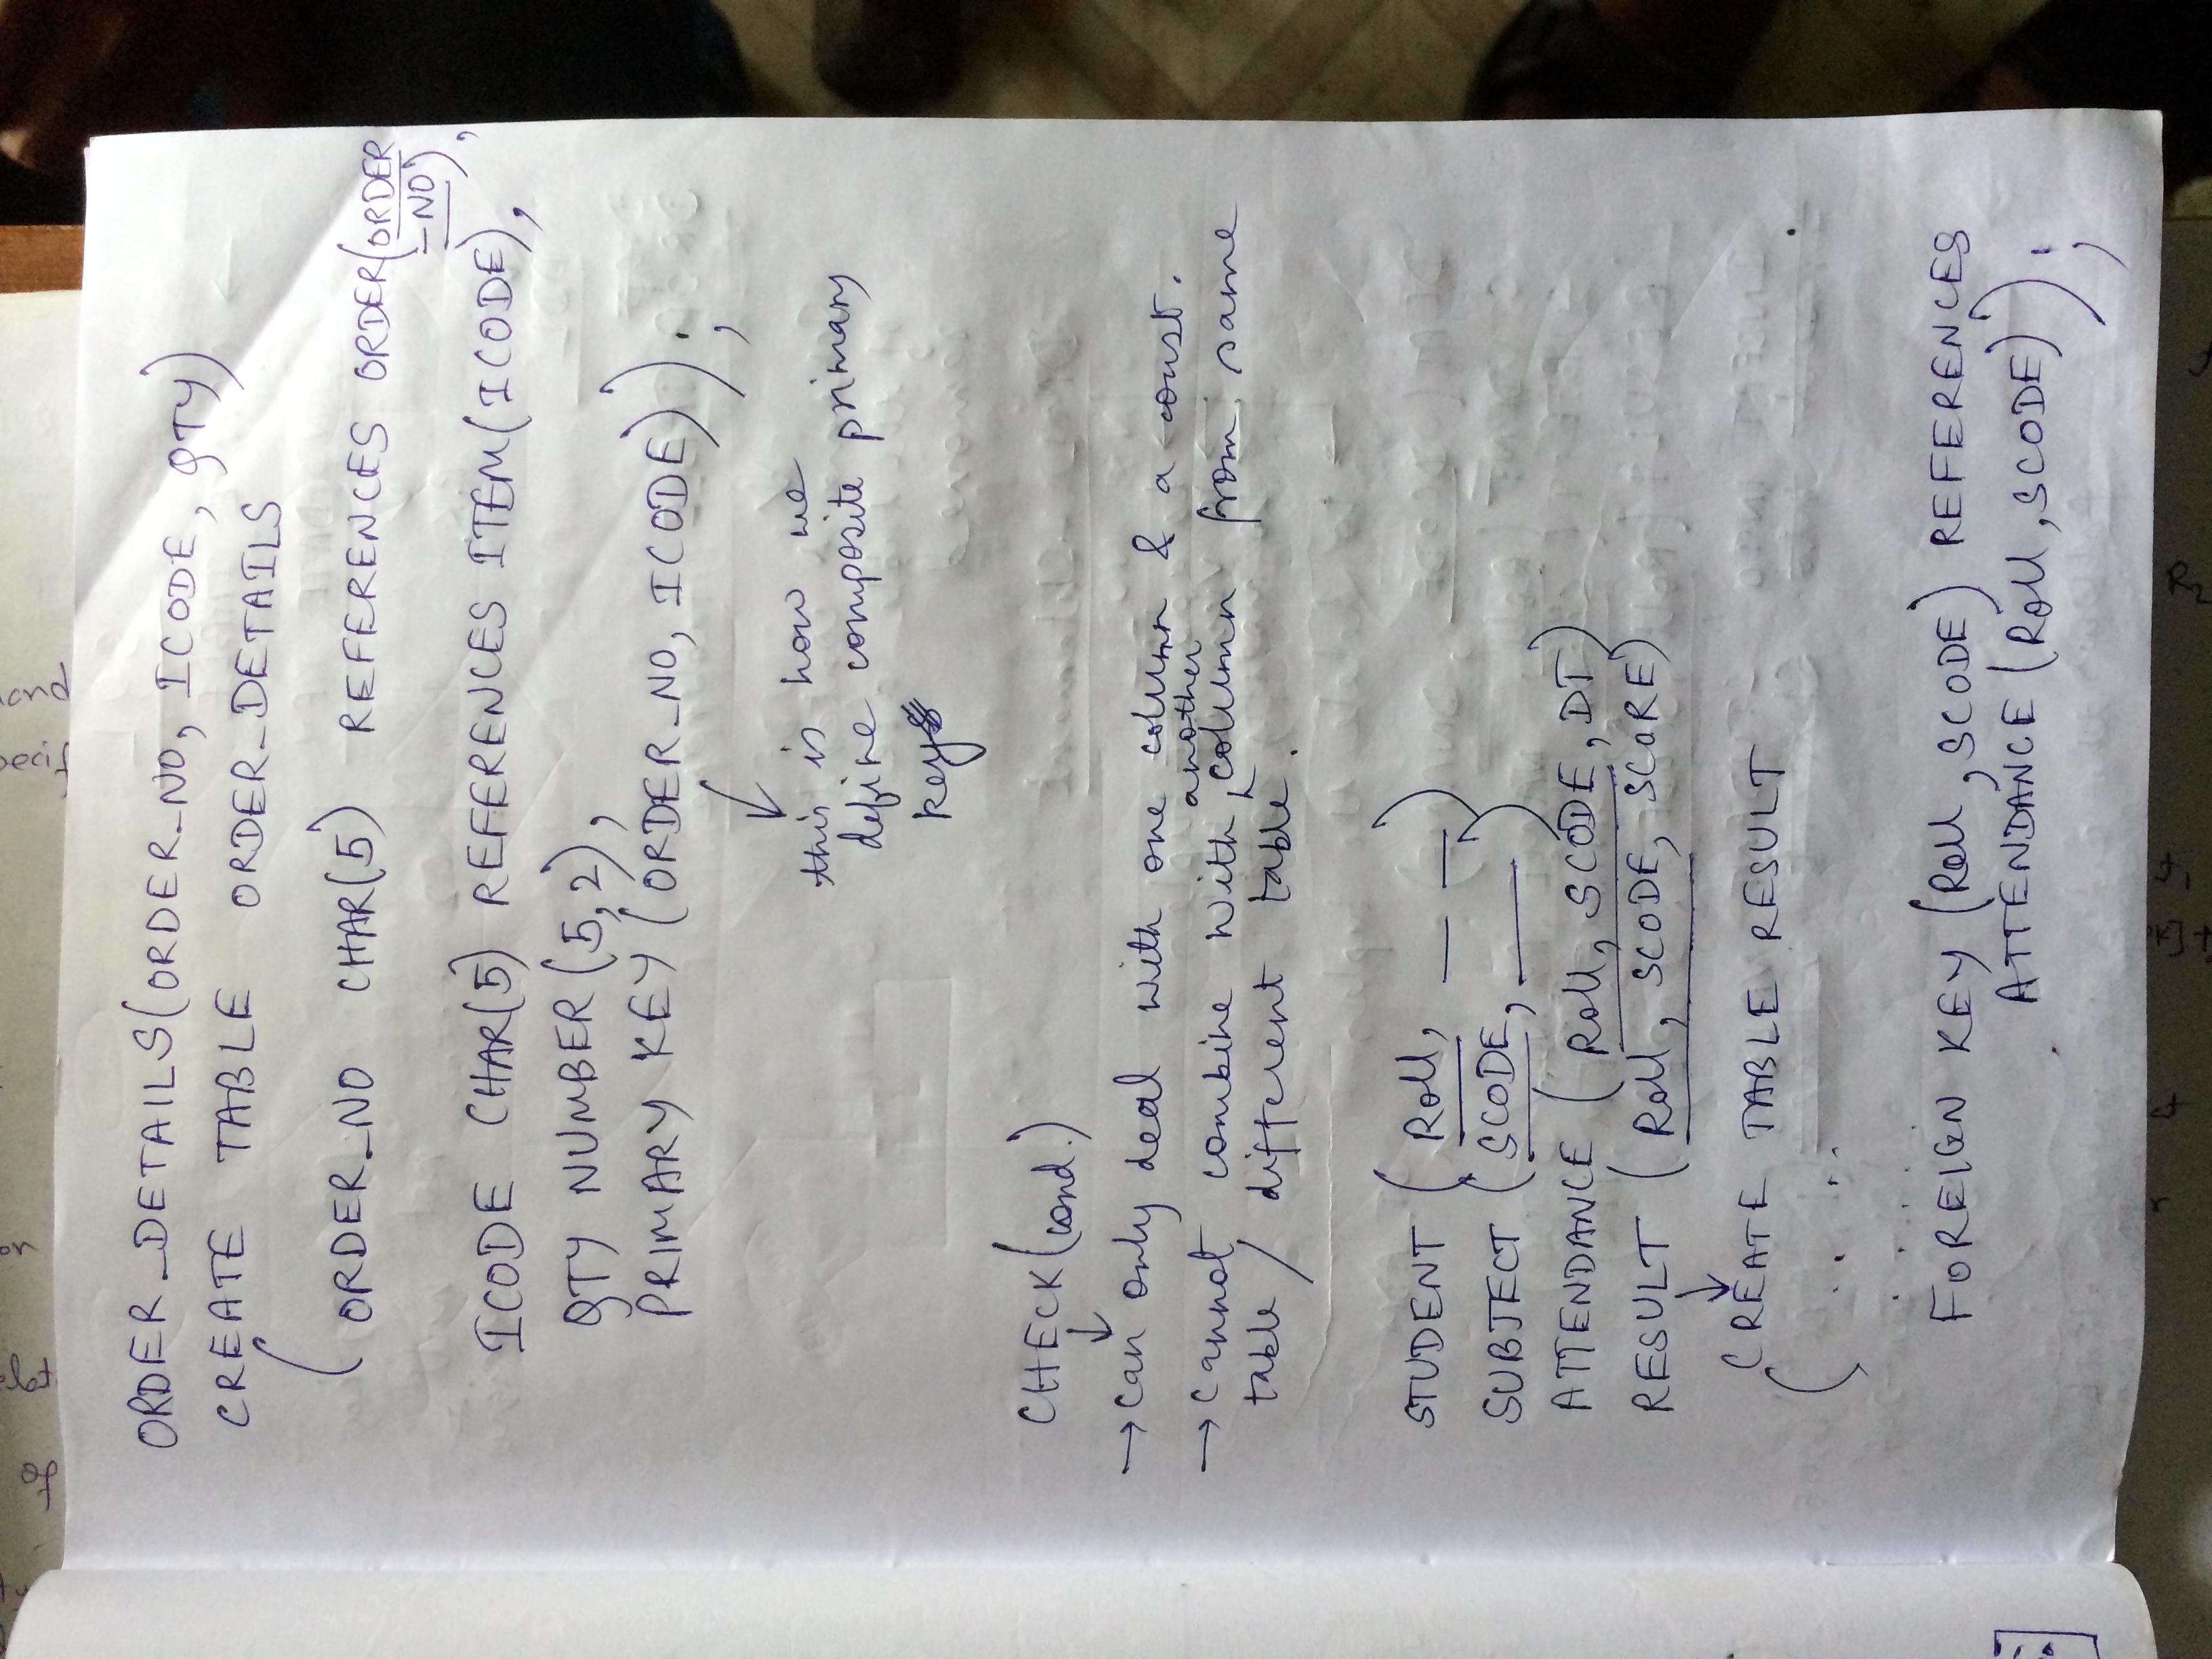 ORDER_DETAILS(ORDER_NO, ICODE, QTY)
CREATE TABLE ORDER_DETAILS
(ORDER_NO CHAR(5) REFERENCES ORDER(ORDER
_NO),
ICODE CHAR(5) REFERENCES ITEM(ICODE),
QTY NUMBER(5,2),
PRIMARY KEY (ORDER_NO, ICODE));
↓
this is how we
define composite primary
key
CHECK(cond.)
↓
→ can only deal with one column & a const.
→ cannot combine with another column from same
table / different table.
STUDENT (Roll, __ __)
SUBJECT (SCODE, ____)
ATTENDANCE (Roll, SCODE, DT)
RESULT (Roll, SCODE, SCORE)
↓
CREATE TABLE RESULT
( .. ..
. . . . . .
FOREIGN KEY (Roll, SCODE) REFERENCES
ATTENDANCE (Roll, SCODE));